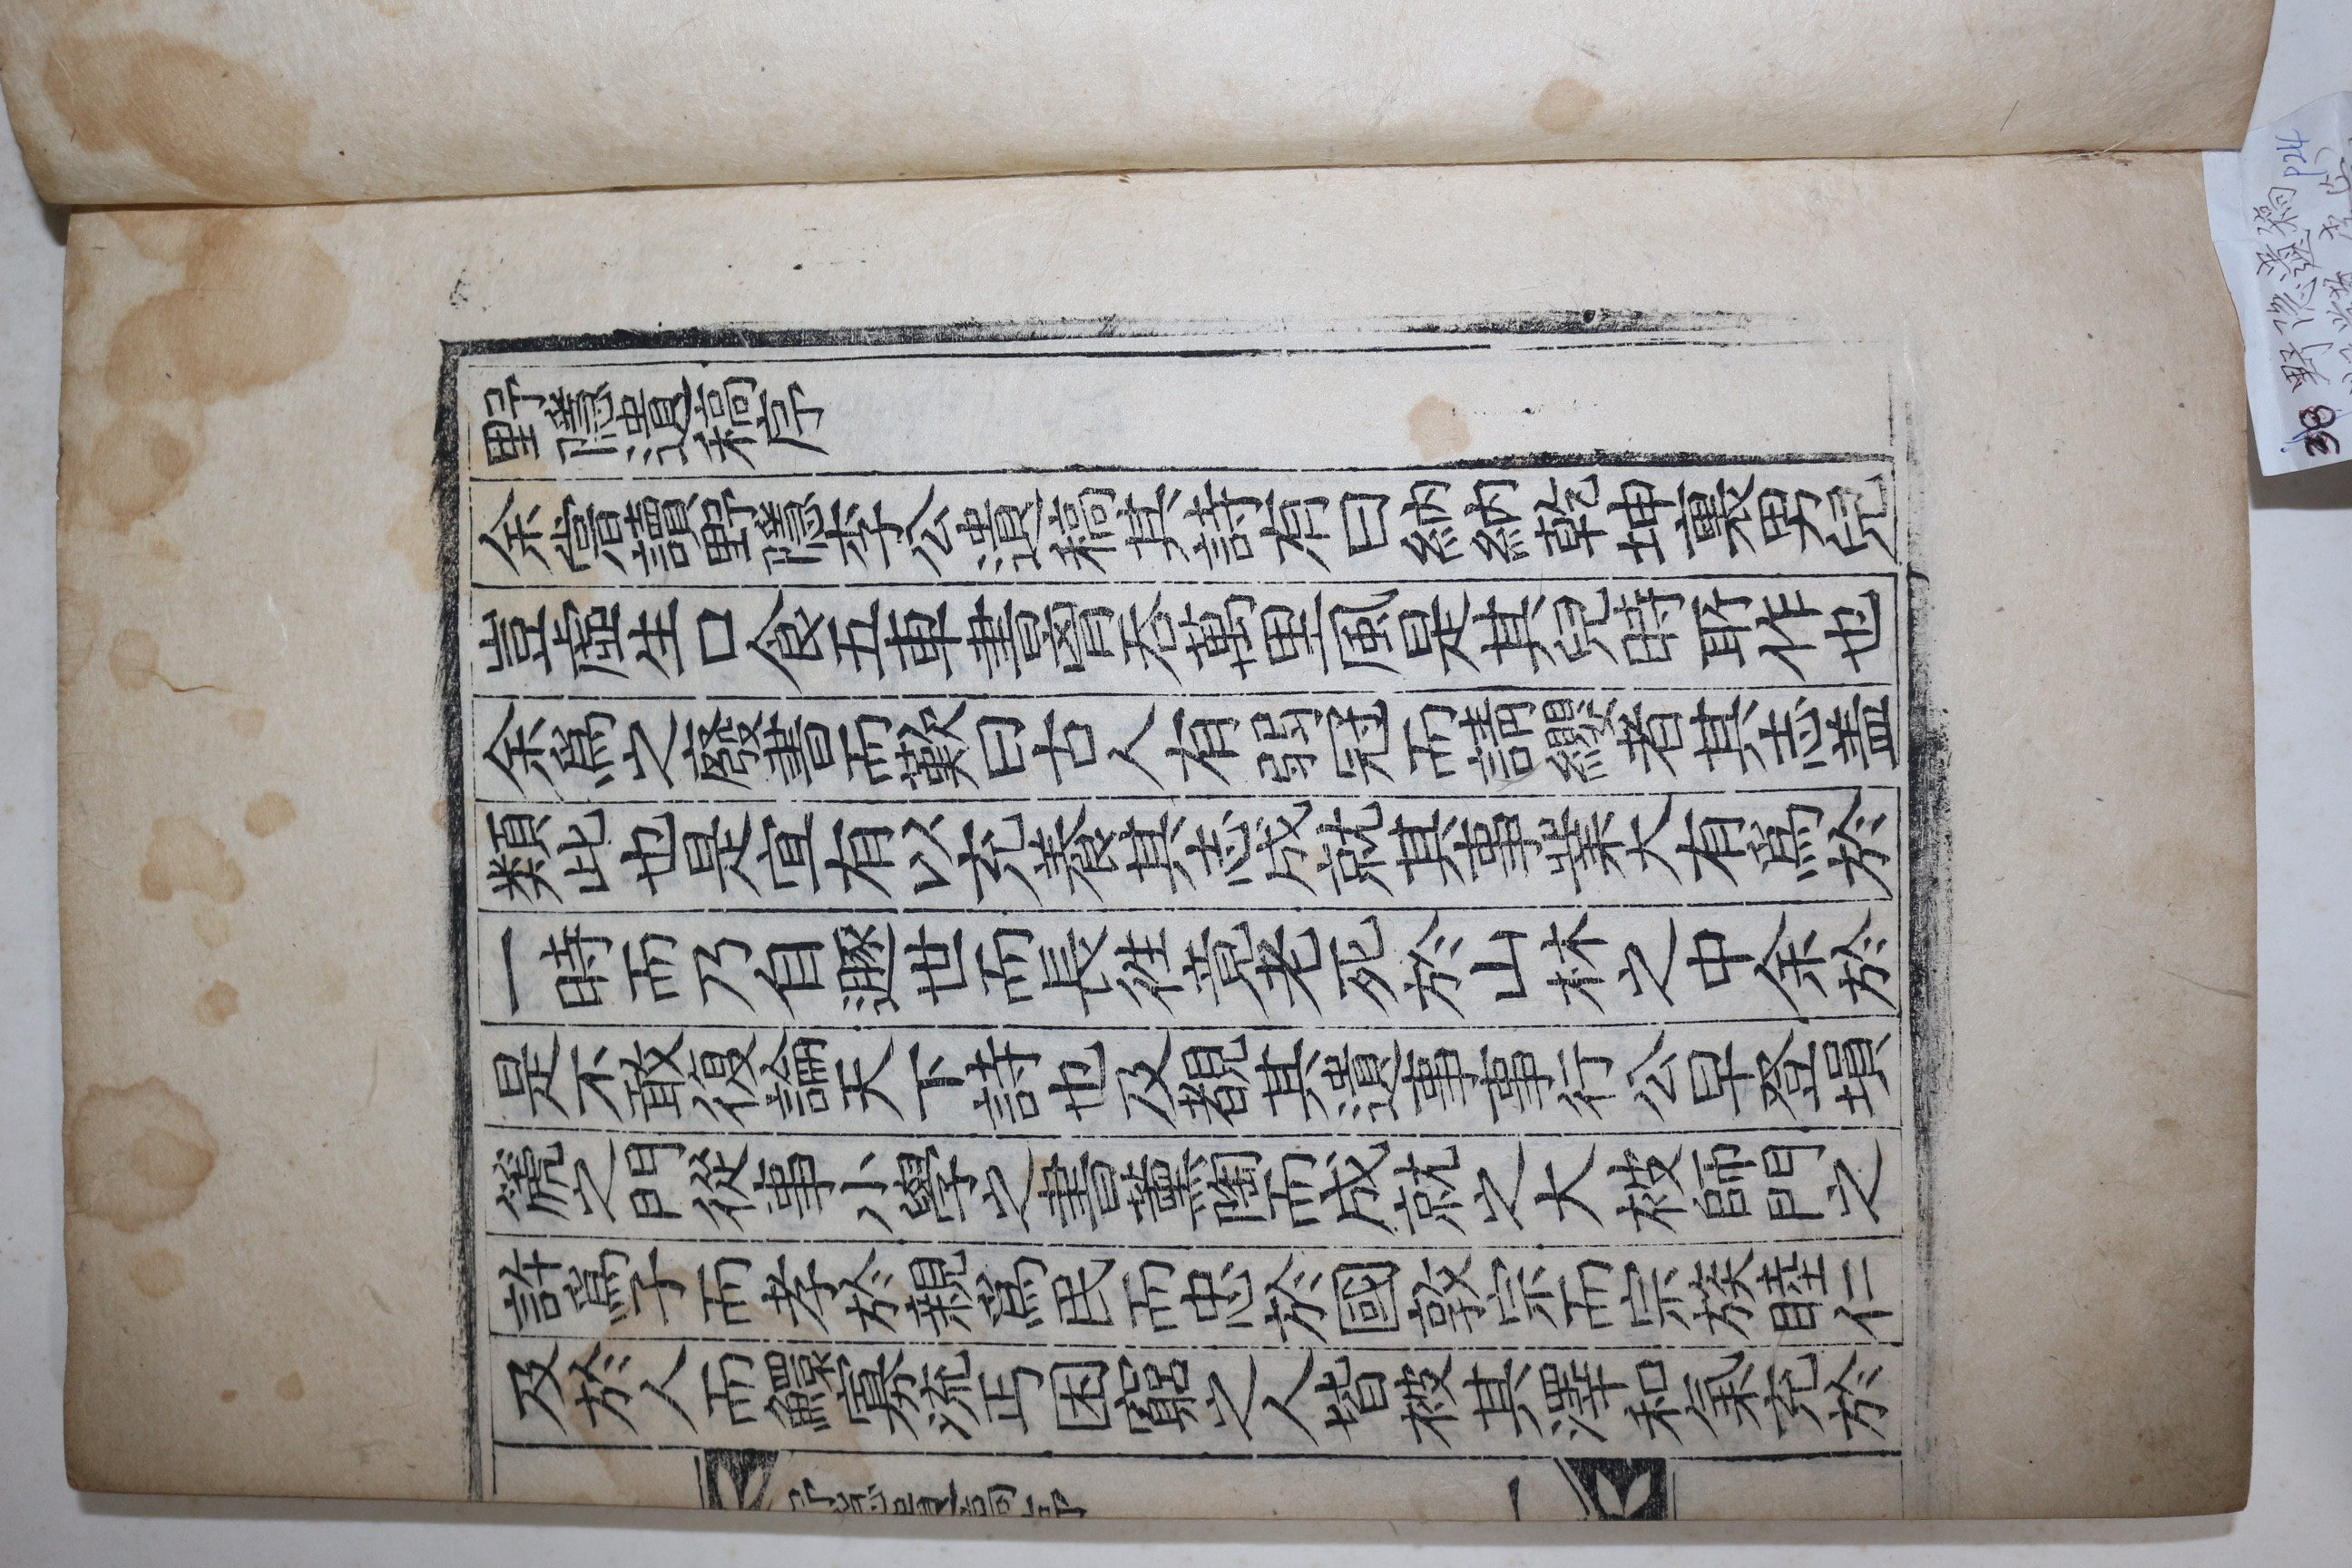 野隱遺稿序
余嘗讀野隱李公遺稿其詩有曰納納乾坤裏男兒
豈虛生口食五車書胷吞萬里風是其兒時所作也
余爲之廢書而歎曰古人有弱冠而請纓者其志盖
類此也是宜有以充養其志成就其事業大有爲於
一時而乃自遯世而長徃竟老死於山林之中余於
是不敢復論天下詩也及覩其遺事事行公早登塤
篪之門從事小學之書薰陶而成就之大被師門之
許爲子而孝於親爲民而忠於國敦宗而宗族睦仁
及於人而鰥寡流丐困窮之人皆被其澤和氣充於
一
38 野隐遺稿 P24